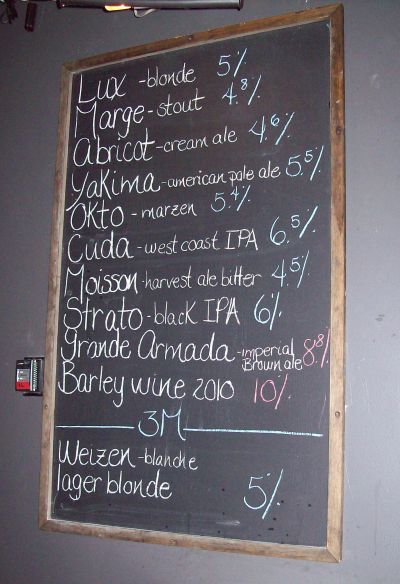 Lux - blonde 5%
Marge - stout 4.8%
Abricot - cream ale 4.6%
Yakima - american pale ale 5.5%
Okto - marzen 5.4%
Cuda - west coast IPA 6.5%
Moisson - harvest ale bitter 4.5%
Strato - black IPA 6%
Grande Armada - imperial Brown ale 8.8%
Barley wine 2010 10%
3M
Weizen - blanche
lager blonde 5%